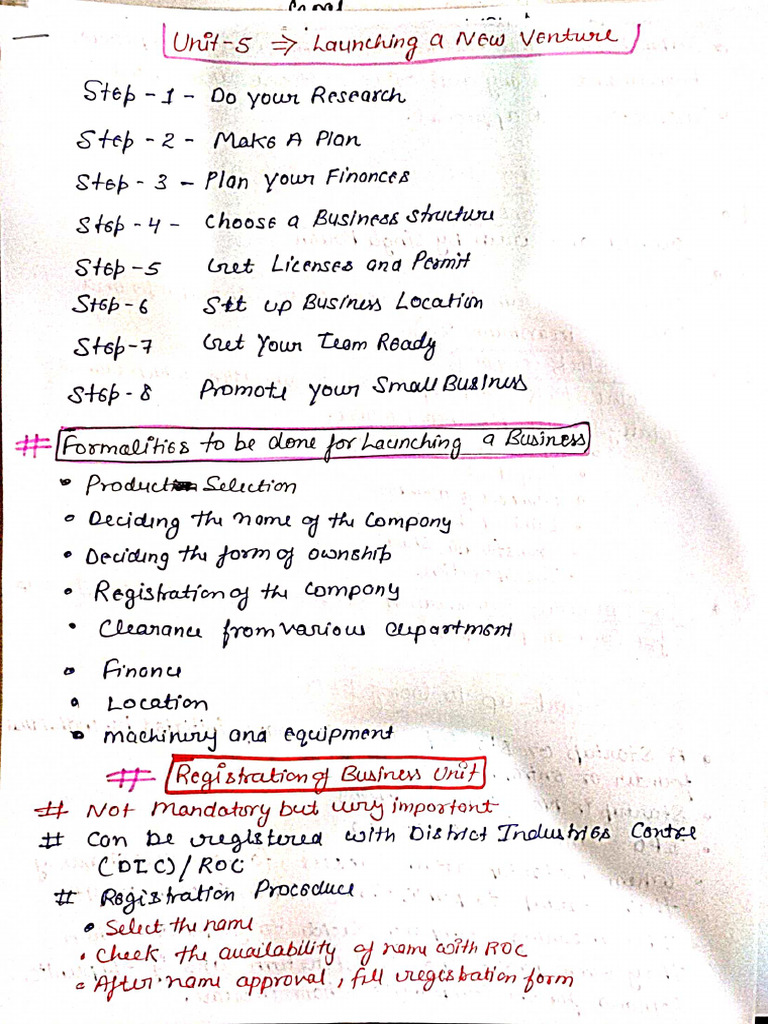 Unit-5 ⇒ Launching a New Venture
Step - 1 - Do your Research
Step - 2 - Make A Plan
Step - 3 - Plan your Finances
Step - 4 - Choose a Business Structure
Step - 5 Get Licenses and Permit
Step - 6 Set up Business Location
Step - 7 Get Your Team Ready
Step - 8 Promote your Small Business
# Formalities to be done for Launching a Business
• Product Selection
• Deciding the name of the Company
• Deciding the form of ownship
• Registration of the Company
• Clearance from various department
• Finance
• Location
• machinery and equipment
# Registration of Business Unit
# Not Mandatory but very important
# Can be registered with District Industries Centre
(DIC) / ROC
# Registration Procedure
• Select the name
• Check the availability of name with ROC
• After name approval, fill registration form